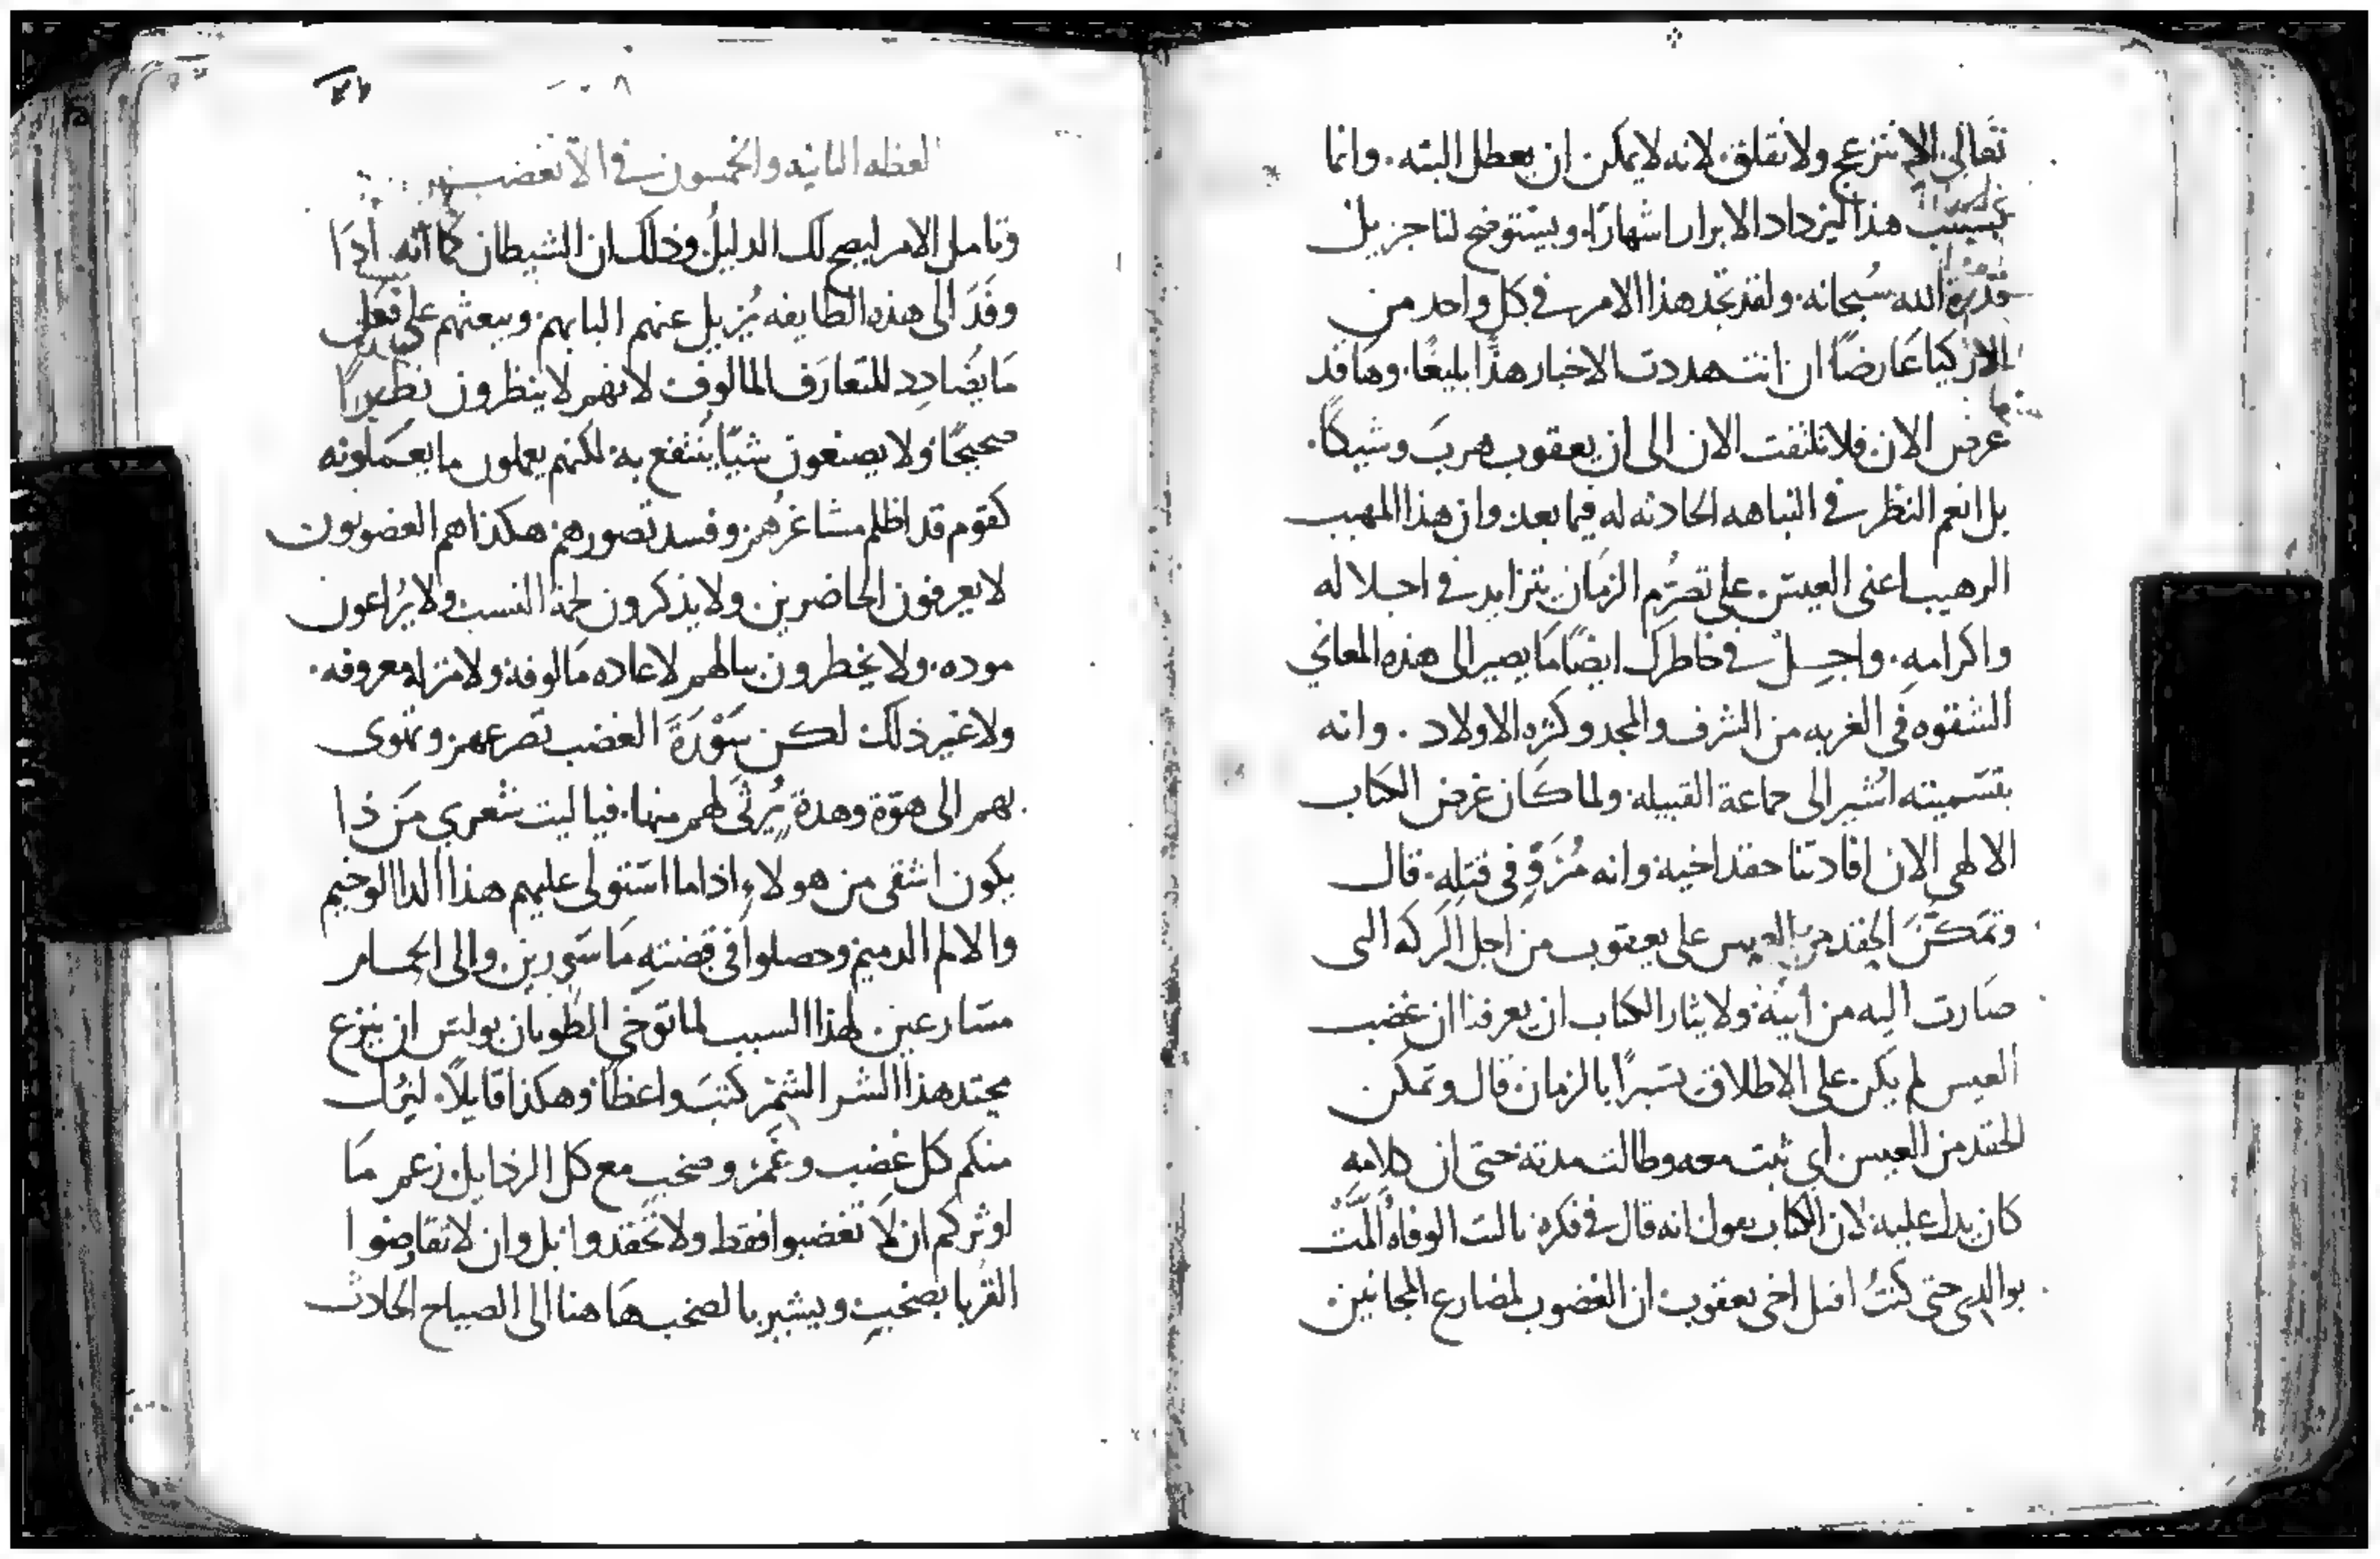 تعالى الا تنزعج ولا تقلق لانه لا يمكن ان يعطل البته. وانما
بسبب هذا ليزداد الابرار اشهارًا. ويستوضح لنا جزيل
قدرة الله سُبحانه. ولقد تجد هذا الامر في كل واحد من
الازكيا عَارضًا ان انت هددت الاخبار هذًّا بليغًا. وها قد
عرض الان فلا تلتفت الان الى ان يعقوب هربَ وشيكًا.
بل انعم النظر في النباهه الحادثه له فيما بعد. وان هذا المهيب
الرهيب اعنى العيس. على تصرُّم الزمان يتزايد في اجلاله
واكرامه. واجِل في خاطرك ايضًا مَا يصير الى هذه المعاني
الشقوه في الغربه من الشرف والمجد وكثره الاولاد. وانه
بتسميته اُشير الى جماعة القبيله. ولما كان غرض الكتاب
الالهي الان افادتنا حقد اخيه وانه مُزَوٍّ في قتله. قال
وتمَكَّنَ الحقد من العيس على يعقوب من اجل البركه التى
صَارت اليه من ابيه. ولايثار الكتاب ان يعرفنا ان غضب
العيس لم يكن على الاطلاق يسَيرًا بالزمان قال وتمكن
الحقد من العيس. اي ثبت معه وطالت مدته حتى ان كلامه
كان يدل عليه لان الكتاب يقول انه قال في فكره يا ليت الوفاه المَّت
بوالدي حتى كنتُ اقتل اخي يعقوب ان الغضوب لمضارع المجانين.
العظه الثانيه والخمسون في الا تغضب
وتامل الامر ليصح لك الدليلُ وذلك ان الشيطان كما انه اذا
وفَدَ الى هذه الطايفه يُزيل عنهم البابهم. ويبعثهم على فعل
مَا يُضادد للمتعارَف المالوف لانهم لا ينظرون نظيرًا
صحيحًا ولا يصنعون شيًا يُنتفع به. لكنهم يعملون ما يعملونه
كقوم قد اظلم مشاعرُهم وفسد تصورهم. هكذا هم الغضوبون
لا يعرفون الحاضرين. ولا يذكرون لحمة النسب ولا يُراعون
موده. ولا يخطرون ببالهم لا عاده مَالوفه ولا منزله معروفه.
ولا غير ذلك لكن سَوْرَةَ الغضب تصرعهم وتهوى
بهم الى هوّة وهدة يُرثَى لهم منها. فيا ليت شعري مَن ذا
يكون اشقى من هولاءِ اذا ما استولى عليهم هذا الدا الوخيم
والالم الدميم وحصلوا في قبضته مَاسَورين. والى الحمام
متسارعين. لهذا السبب لما توخي الطوبان بولس ان ينزع
محتد هذا الشر الشمر كتبَ واعظًا وهكذا قايلًا. ليُزل
منكم كل غضب وغَمّ وصخب مع كل الرذايل. زعم مَا
اوثركم ان لا تغضبوا فقط ولا تحقدوا. بل وان لا تقاوضوا
القُربا بصخبٍ ويشير بالصخب هَا هنا الى الصياح الحادث